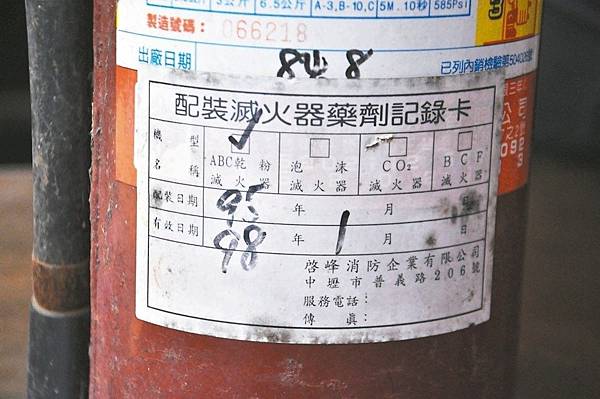 3公斤 6.5公斤 A-3,B-10,C 5M.10秒 585Psi
製造號碼： 066218
出廠日期 84 8 已列內銷檢驗第504026號
配裝滅火器藥劑記錄卡
機型 ✓ □ □ □
名稱 ABC乾粉滅火器 泡沫滅火器 CO₂滅火器 BCF滅火器
配裝日期 95 年 月 日
有效日期 98 年 1 月 日
啓峰消防企業有限公司
中壢市普義路206號
服務電話：
傳真：
公司
092
3